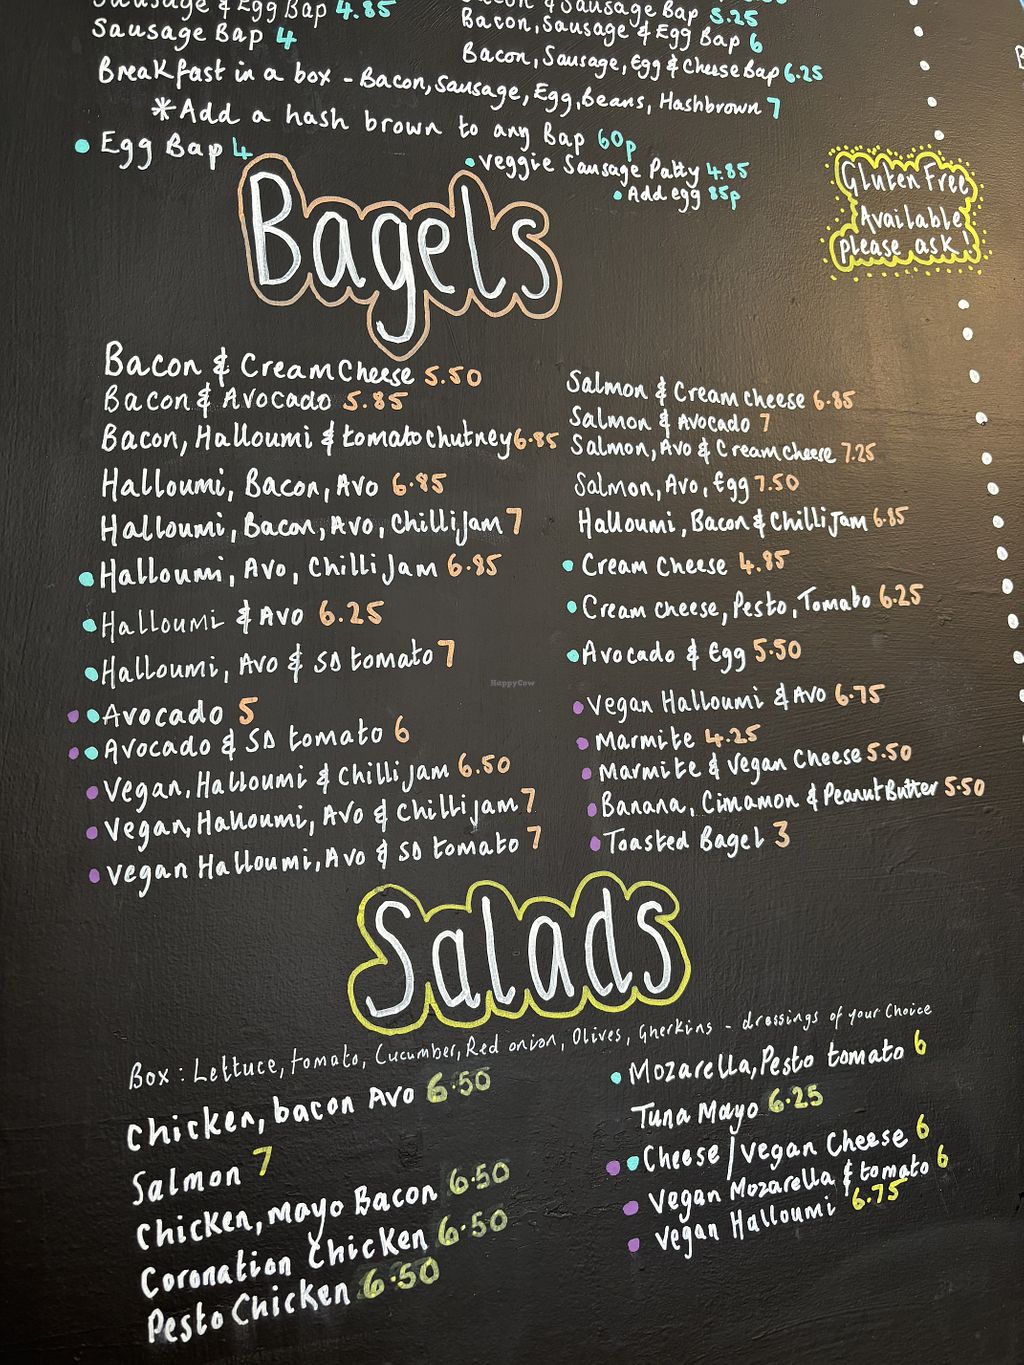 Sausage & Egg Bap 4.85
Sausage Bap 4
& Sausage Bap 5.25
Bacon, Sausage & Egg Bap 6
Bacon, Sausage, Egg & Cheese Bap 6.25
Breakfast in a box - Bacon, Sausage, Egg, Beans, Hashbrown 7
*Add a hash brown to any Bap 60p
Egg Bap 4
veggie Sausage Patty 4.85
Add egg 85p
Gluten Free
Available
please ask!
Bagels
Bacon & Cream Cheese 5.50
Bacon & Avocado 5.85
Bacon, Halloumi & tomato chutney 6.85
Halloumi, Bacon, Avo 6.85
Halloumi, Bacon, Avo, Chilli Jam 7
Halloumi, Avo, Chilli Jam 6.85
Halloumi & Avo 6.25
Halloumi, Avo & SD tomato 7
Avocado 5
Avocado & SD tomato 6
Vegan, Halloumi & Chilli jam 6.50
Vegan, Halloumi, Avo & Chilli jam 7
vegan Halloumi, Avo & SD tomato 7
Salmon & Cream cheese 6.85
Salmon & Avocado 7
Salmon, Avo & Cream cheese 7.25
Salmon, Avo, Egg 7.50
Halloumi, Bacon & Chilli Jam 6.85
Cream Cheese 4.85
Cream cheese, Pesto, Tomato 6.25
Avocado & Egg 5.50
Vegan Halloumi & Avo 6.75
Marmite 4.25
Marmite & Vegan Cheese 5.50
Banana, Cinnamon & Peanut Butter 5.50
Toasted Bagel 3
HappyCow
Salads
Box: Lettuce, tomato, Cucumber, Red onion, Olives, Gherkins - dressings of your Choice
Chicken, bacon Avo 6.50
Salmon 7
Chicken, mayo Bacon 6.50
Coronation Chicken 6.50
Pesto Chicken 6.50
Mozarella, Pesto tomato 6
Tuna Mayo 6.25
Cheese / Vegan Cheese 6
Vegan Mozarella & tomato 6
vegan Halloumi 6.75